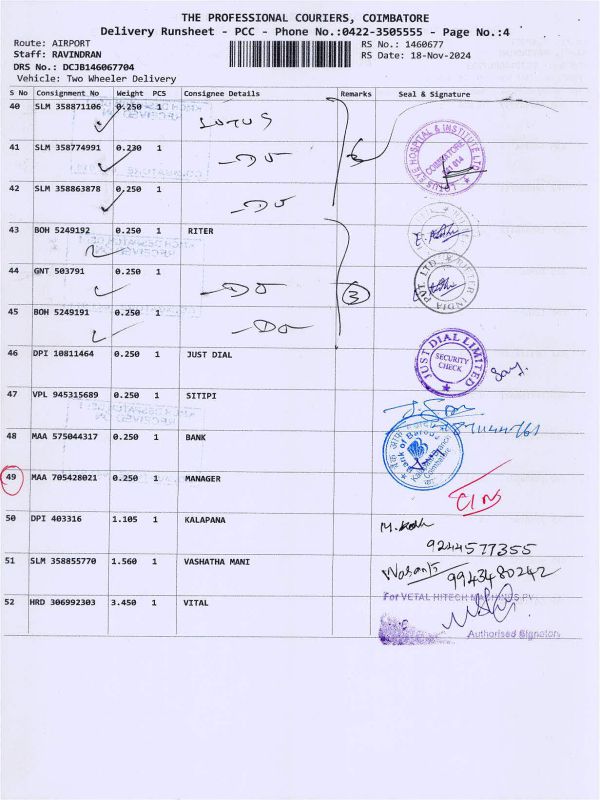 THE PROFESSIONAL COURIERS, COIMBATORE
Delivery Runsheet - PCC - Phone No.:0422-3505555 - Page No.:4
Route: AIRPORT RS No.: 1460677
Staff: RAVINDRAN RS Date: 18-Nov-2024
DRS No.: DCJB146067704
Vehicle: Two Wheeler Delivery
S No Consignment No Weight PCS Consignee Details Remarks Seal & Signature
40 SLM 358871106 0.250 1 LOTUS
41 SLM 358774991 0.230 1 -DO
LOTUS EYE HOSPITAL & INSTITUTE LTD
COIMBATORE
641 014
42 SLM 358863878 0.250 1 -DO
43 BOH 5249192 0.250 1 RITER
44 GNT 503791 0.250 1 -DO 3
RITTER INDIA PVT. LTD.
45 BOH 5249191 0.250 1 -DO
46 DPI 10811464 0.250 1 JUST DIAL
JUST DIAL LIMITED
SECURITY CHECK
47 VPL 945315689 0.250 1 SITIPI
48 MAA 575044317 0.250 1 BANK
Bank of Baroda
Coimbatore
49 MAA 705428021 0.250 1 MANAGER
50 DPI 403316 1.105 1 KALAPANA
9244577355
51 SLM 358855770 1.560 1 VASHATHA MANI
9943480242
52 HRD 306992303 3.450 1 VITAL
For VETAL HITECH MACHINES PV
Authorised Signatory